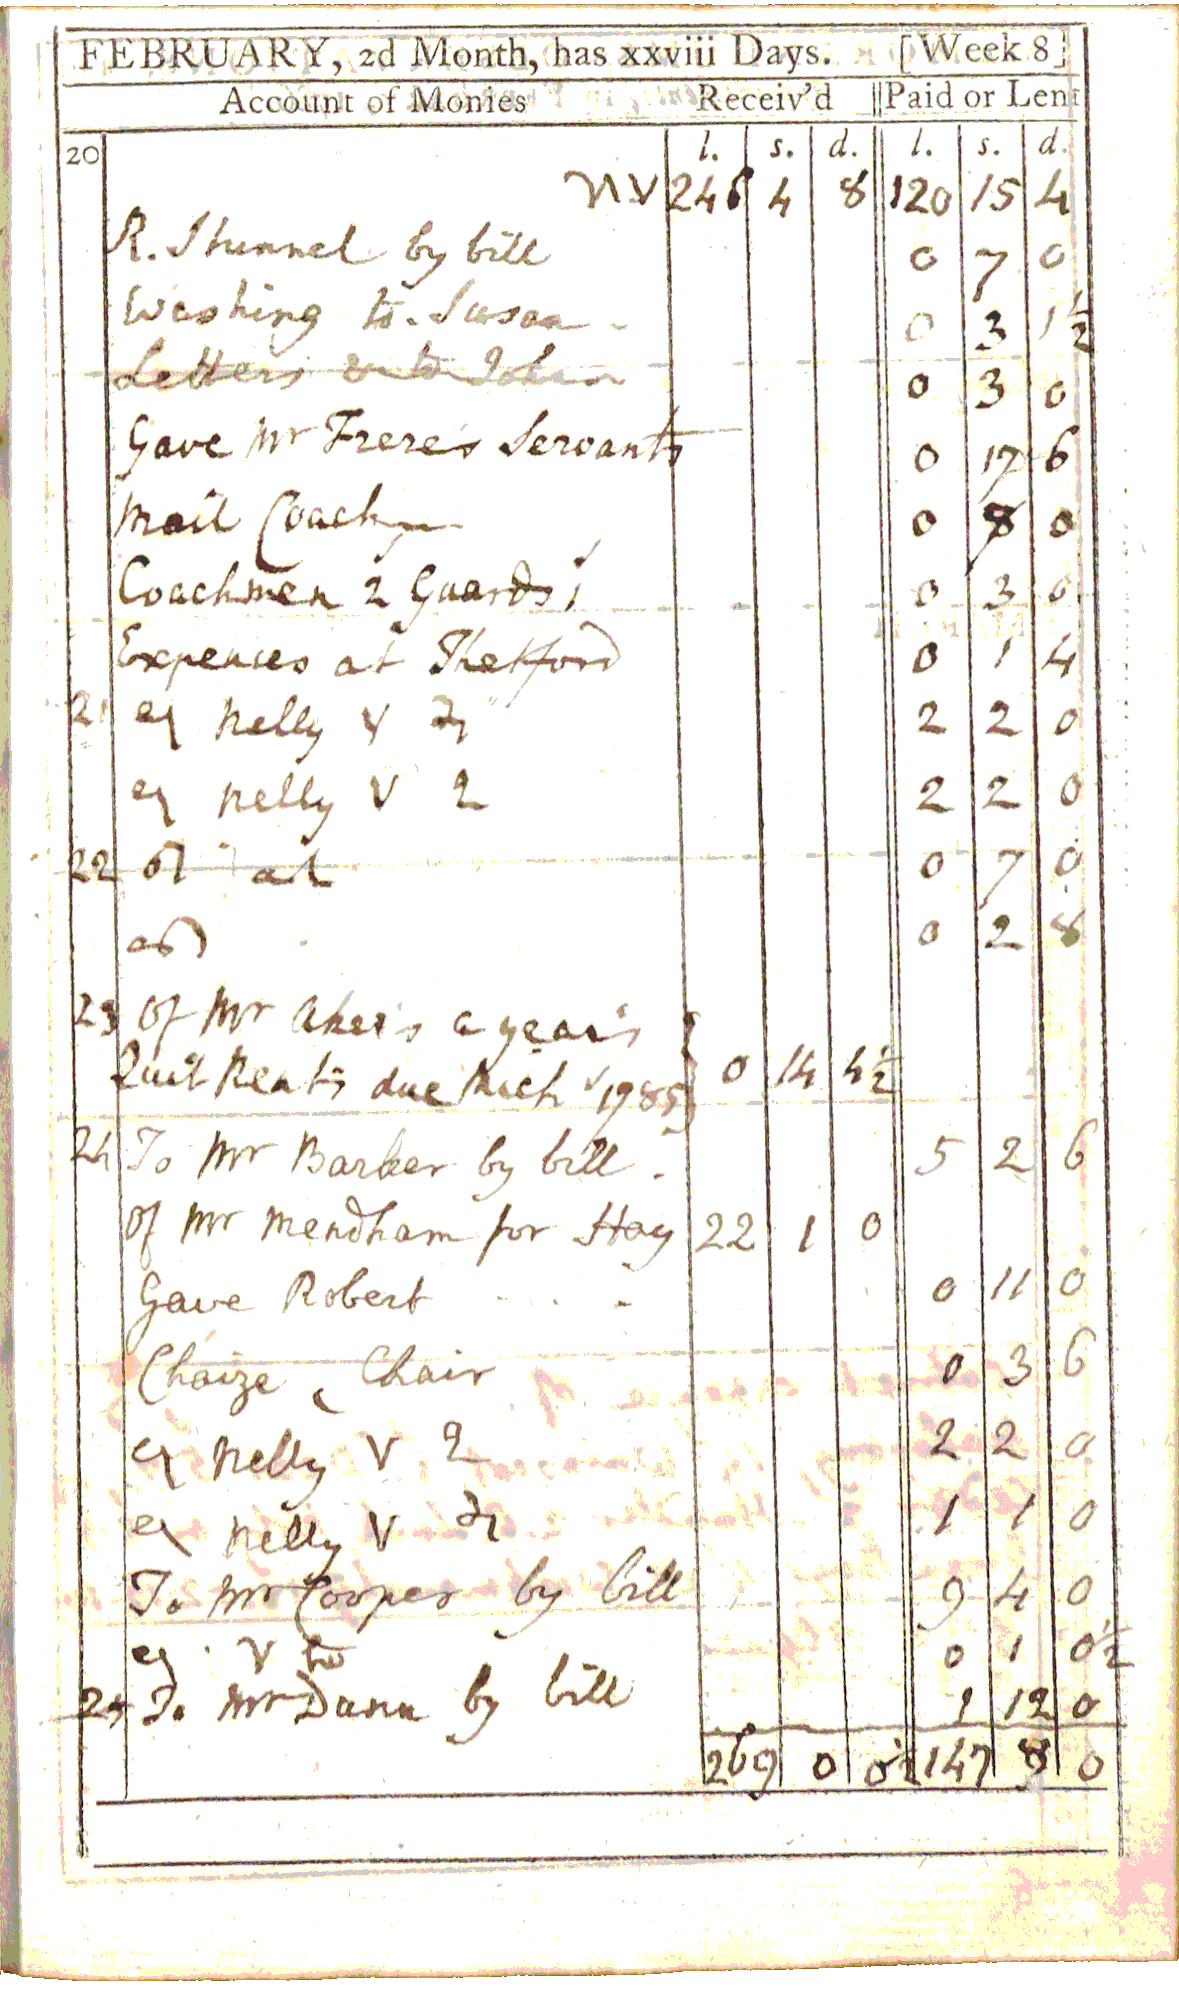 FEBRUARY, 2d Month, has xxviii Days. [Week 8]
Account of Monies Receiv'd Paid or Lent
20 l. s. d. l. s. d.
246 4 8 120 15 4
R. Stunnel by bill 0 7 0
Washing to Susan 0 3 1½
Letters & to John 0 3 0
Gave Mr Frere's Servants 0 17 6
Mail Coach 0 8 0
Coachmen 2 Guards 1 0 3 0
Expences at Thetford 0 1 4
21 Nelly V 2 2 0
Nelly V 2 2 2 0
22 at 0 7 0
0 2 8
23 Of Mr Aker's a year's
Quit Rents due Mich 1785 0 14 4½
24 To Mr Barker by bill 5 2 6
Of Mr Mendham for Hay 22 1 0
Gave Robert 0 11 0
Chaize, Chair 0 3 6
Nelly V 2 2 2 0
Nelly V 1 1 0
To Mr Cooper by bill 9 4 0
V to 0 1 0½
25 To Mr Dann by bill 1 12 0
269 0 0½ 147 8 0